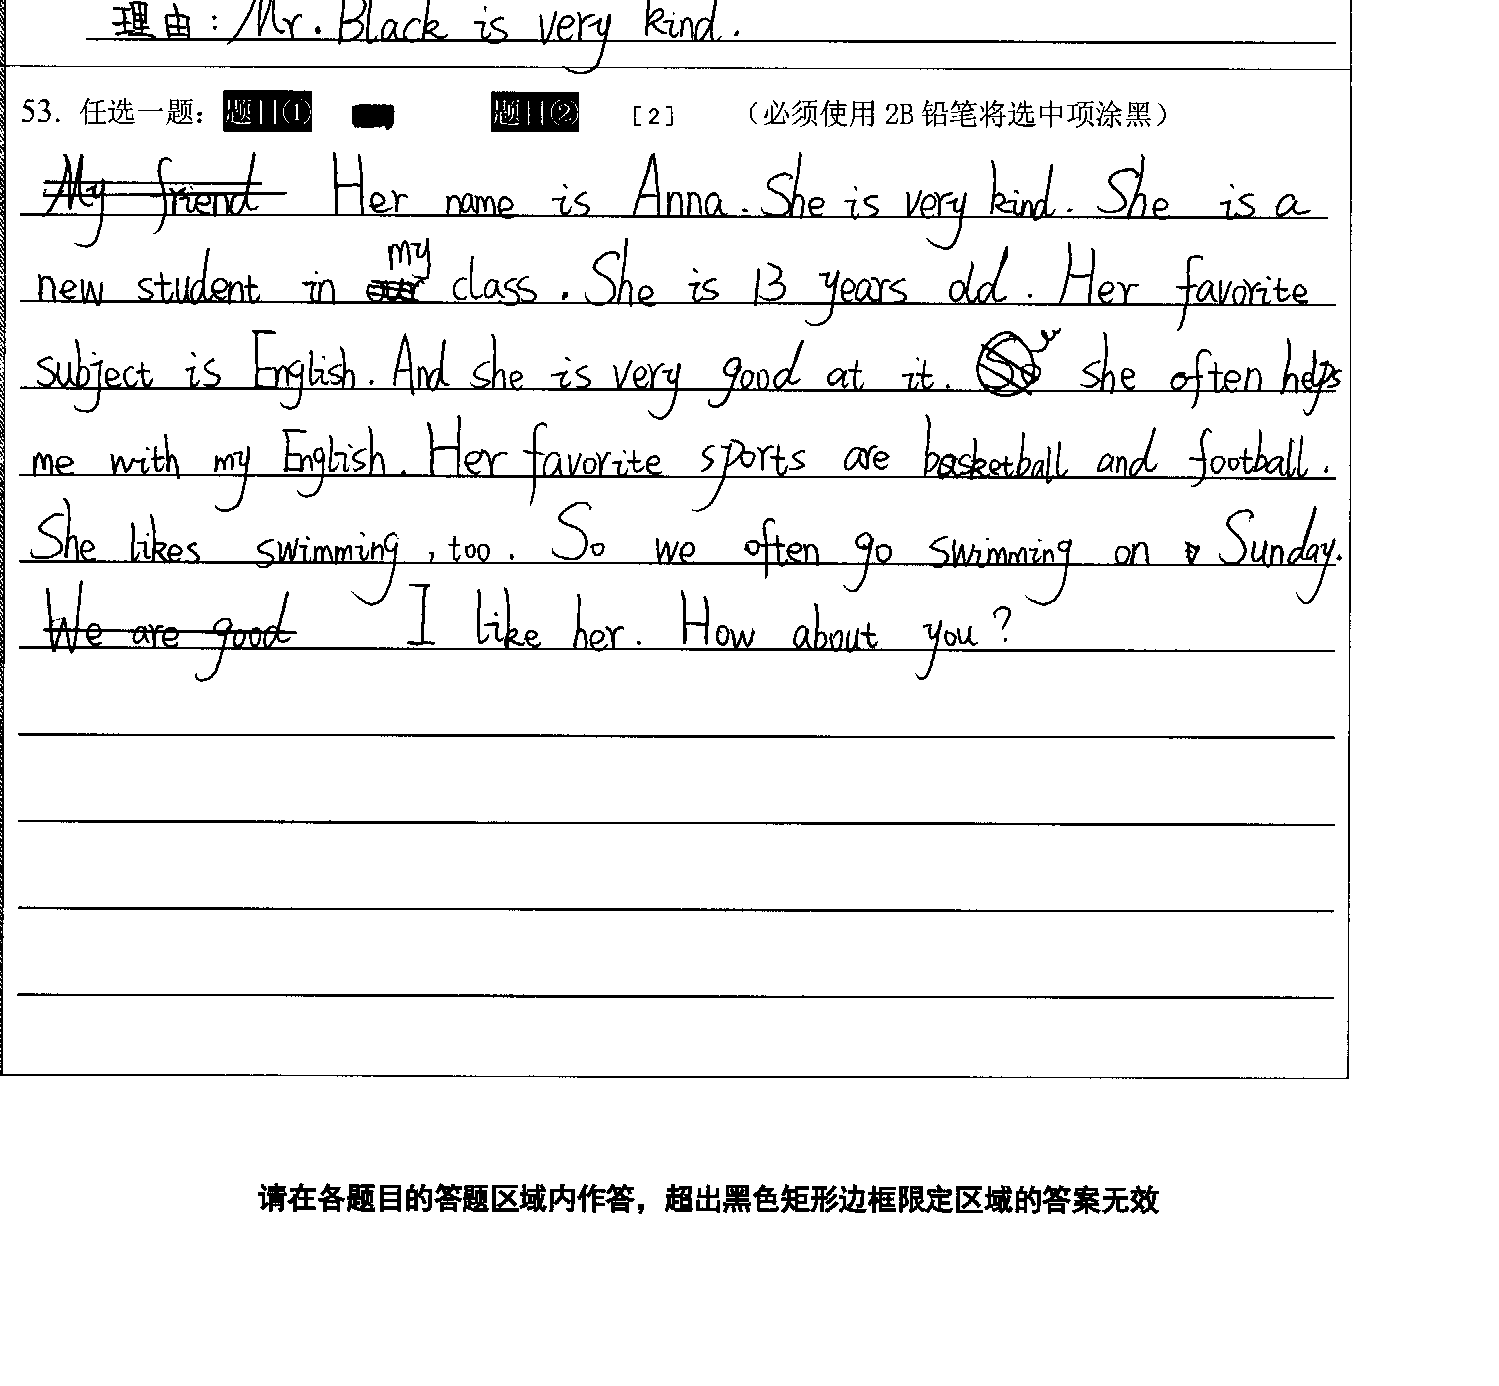 理由: Mr. Black is very kind.
53. 任选一题: 题目① 题目② [2] (必须使用 2B 铅笔将选中项涂黑)
My friend Her name is Anna. She is very kind. She is a
my
new student in our class. She is 13 years old. Her favorite
subject is English. And she is very good at it. So she often helps
me with my English. Her favorite sports are basketball and football.
She likes swimming, too. So we often go swimming on Sunday.
We are good I like her. How about you?
请在各题目的答题区域内作答，超出黑色矩形边框限定区域的答案无效